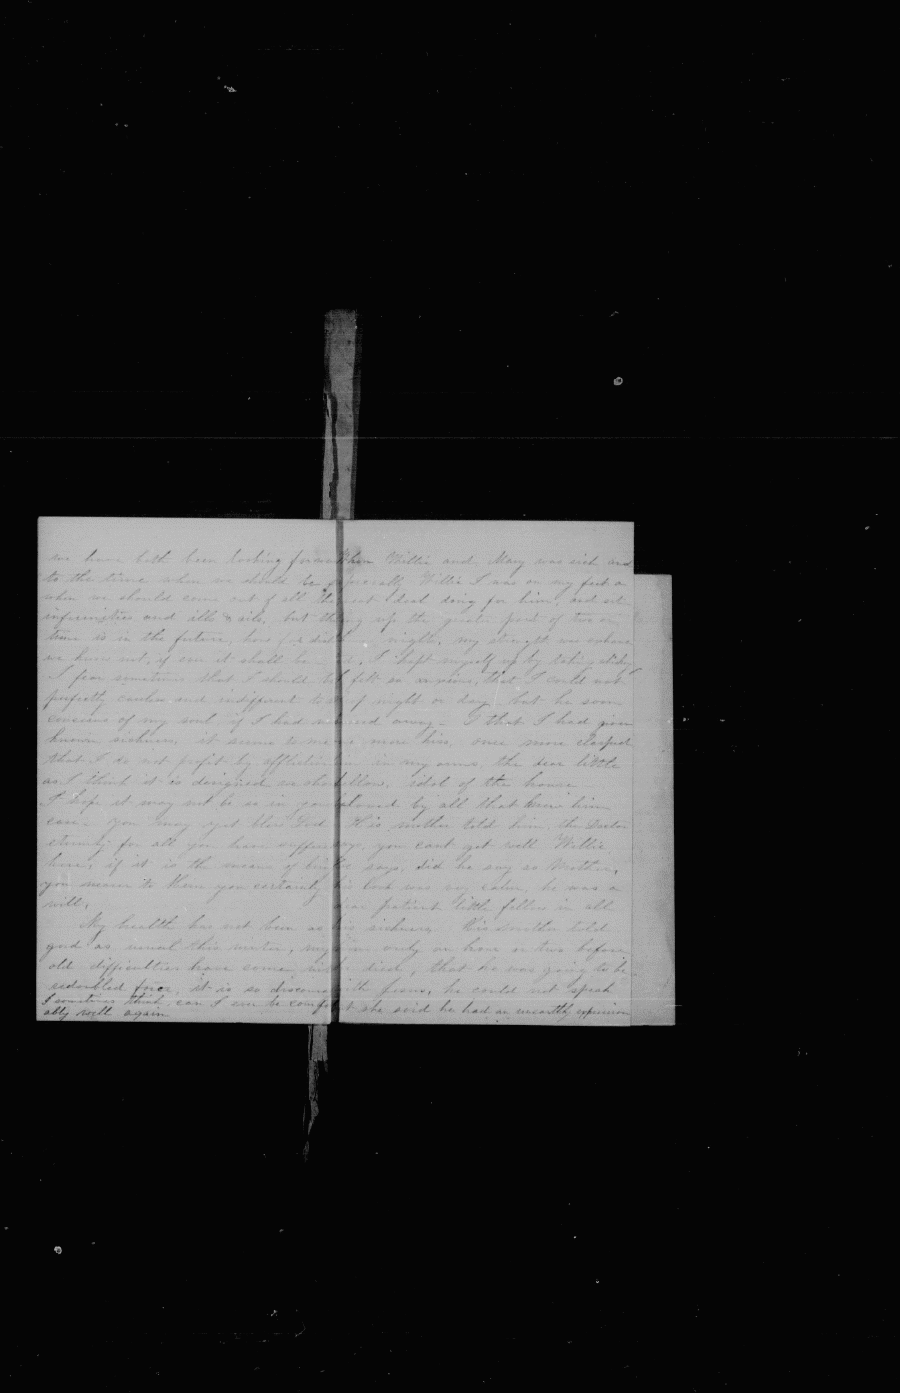 we have both been looking forward
to the time when we should be f
when we should come out of all the
infirmities and ills & sils, but th
time is in the future, how far dist
we know not, if ever it shall be
I fear sometimes that I should be
perfectly careless and indifferent to
concerns of my soul if I had not
known sickness, it seems to me
that I do not profit by affliction
as I think it is designed we sho
I hope it may not be so in your
case you may yet bless God
eternity for all you have suffer
here, if it is the means of bring
you nearer to Him you certainly
will.
My health has not been as
good as usual this winter, my
old difficulties have come with
redoubled force, it is so discoura
I sometimes think can I ever be comfort
ably well again
When Willie and Mary was sick and
especially Willie I was on my feet a
great deal doing for him, and sit
ting up the great part of two or
nights, my strength was
I kept myself up by taking
I felt so anxious, that I could not
night or day but he soon
away - I that I had given
more him, once more clasped
in my arms, the dear little
fellow, idol of the house
loved by all that knew him
His mother told him, the Doctor
says, you cant get well Willie
says, did he say so Mother,
his look was very calm, he was a
dear patient little fellow in all
his sickness His Mother told
him only an hour or two before
he died, that he was going to be
with Jesus, he could not speak
but she said he had an unearthly expression